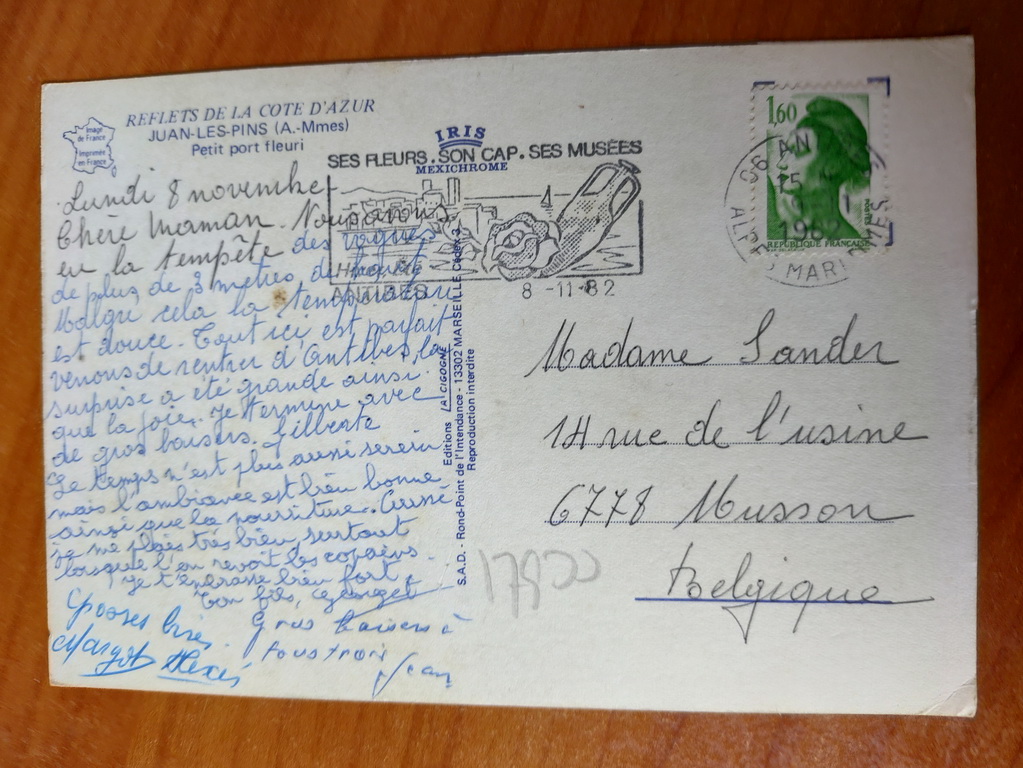 REFLETS DE LA COTE D'AZUR
JUAN-LES-PINS (A.-Mmes)
Petit port fleuri
Image de France
Imprimée en France
IRIS
MEXICHROME
SES FLEURS. SON CAP. SES MUSÉES
ANTIBES
8 -11-82
1,60
REPUBLIQUE FRANÇAISE
06 AN
15
1982
ALPES MARITIMES
Lundi 8 novembre
Chère Maman. Nous avons
eu la tempête des vagues
de plus de 3 mètres de haut
Malgré cela la température
est douce. Tout ici est parfait
venons de rentrer d'Antibes, la
surprise a été grande ainsi
que la joie. Je termine avec
de gros baisers.
Le temps n'est plus aussi serein
mais l'ambiance est bien bonne
ainsi que la nourriture. Aussi
je me plais très bien, surtout
lorsque l'on revoit les copains.
Je t'embrasse bien fort,
Ton fils, Georget
Grosses bises
Margot Alexis
Gros baisers à
tous trois Jean
Editions LA CIGOGNE
S.A.D. - Rond-Point de l'Intendance - 13302 MARSEILLE Cédex 3
Reproduction interdite
Madame Sander
14 rue de l'usine
6778 Musson
Belgique